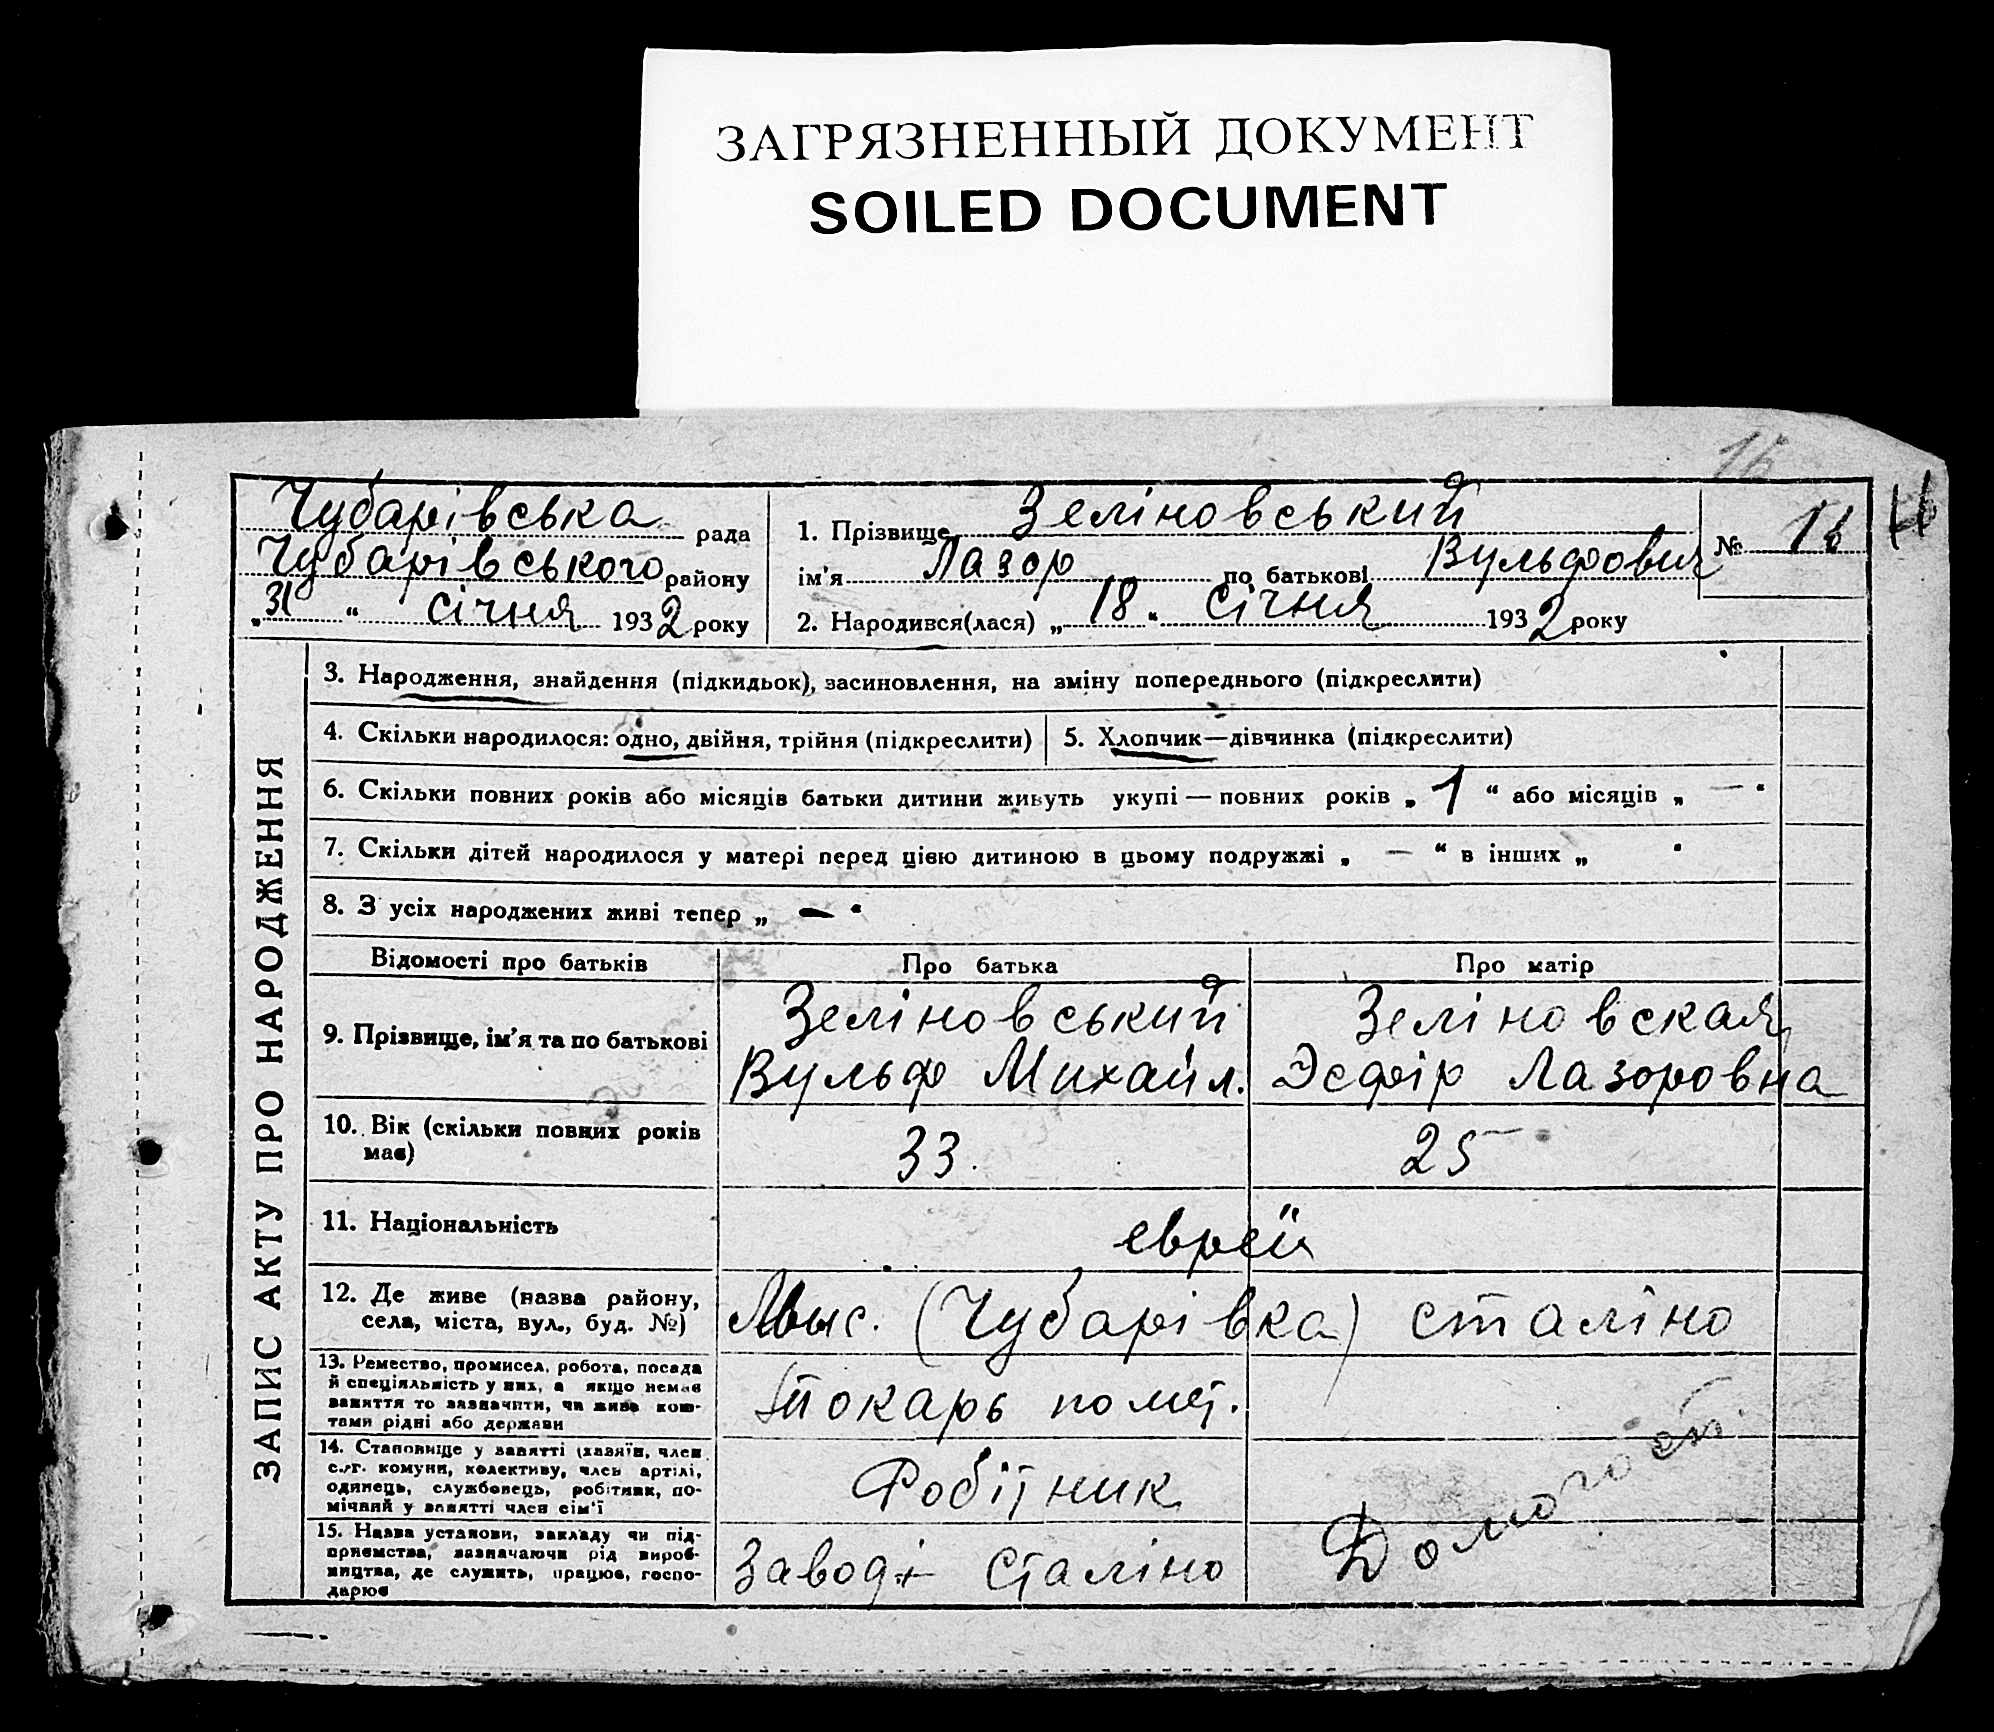 ЗАГРЯЗНЕННЫЙ ДОКУМЕНТ
SOILED DOCUMENT
16
Чубарівська рада
Чубарівського району
„31“ січня 1932 року
1. Прізвище Зеліновський
ім'я Лазор по батькові Вульфович
2. Народився(лася) „18“ січня 1932 року
№ 16
ЗАПИС АКТУ ПРО НАРОДЖЕННЯ
3. Народження, знайдення (підкидьок), засиновлення, на зміну попереднього (підкреслити)
4. Скільки народилося: одно, двійня, трійня (підкреслити)
5. Хлопчик—дівчинка (підкреслити)
6. Скільки повних років або місяців батьки дитини живуть укупі — повних років „ 1 “ або місяців „ — “
7. Скільки дітей народилося у матері перед цією дитиною в цьому подружжі „ — “ в інших „ “
8. З усіх народжених живі тепер „ — “
Відомості про батьків Про батька Про матір
9. Прізвище, ім'я та по батькові
Зеліновський
Вульф Михайл.
Зеліновская
Эсфір Лазоровна
10. Вік (скільки повних років
має)
33.
25
11. Національність
еврей
12. Де живе (назва району,
села, міста, вул., буд. №)
(Чубарівка) Сталіно
13. Ремество, промисел, робота, посада
й спеціяльність у них, а якщо немає
заняття то зазначити, чи живе кош-
тами рідні або держави
токарь по мет.
14. Становище у занятті (хазяїн, член
с.-г. комуни, колективу, член артілі,
одинець, службовець, робітник, по-
мічний у занятті член сім'ї
Робітник
15. Назва установи, закладу чи під-
приємства, зазначаючи рід вироб-
ництва, де служить, працює, госпо-
дарює
Заводі Сталіно